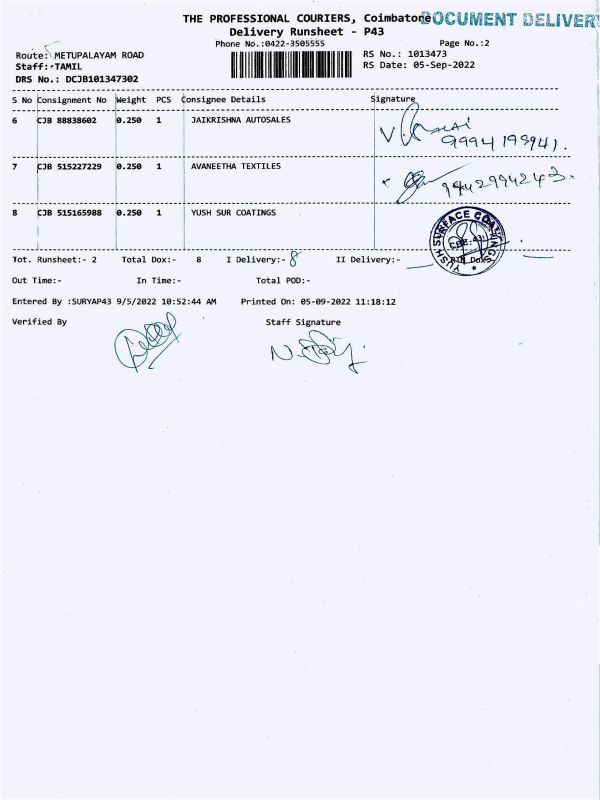 THE PROFESSIONAL COURIERS, Coimbatore DOCUMENT DELIVER
Delivery Runsheet - P43
Phone No.:0422-3505555 Page No.:2
Route: METUPALAYAM ROAD RS No.: 1013473
Staff: TAMIL RS Date: 05-Sep-2022
DRS No.: DCJB101347302
S No Consignment No Weight PCS Consignee Details Signature
6 CJB 88838602 0.250 1 JAIKRISHNA AUTOSALES
9994195941.
7 CJB 515227229 0.250 1 AVANEETHA TEXTILES
9442994243.
8 CJB 515165988 0.250 1 YUSH SUR COATINGS
YUSH SURFACE COATINGS
Tot. Runsheet:- 2 Total Dox:- 8 I Delivery:- 8 II Delivery:-
Out Time:- In Time:- Total POD:-
Entered By :SURYAP43 9/5/2022 10:52:44 AM Printed On: 05-09-2022 11:18:12
Verified By Staff Signature